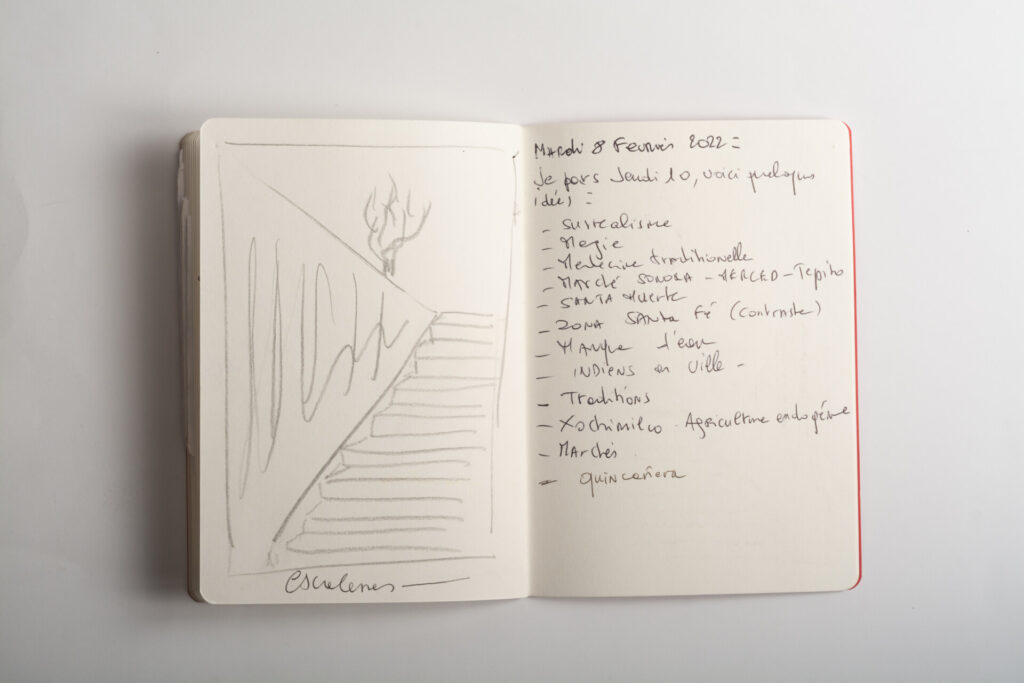 escaleras
Mardi 8 Fevrier 2022 =
Je pars Jeudi 10, voici quelques
idées =
- surrealisme
- Magie
- Medecine traditionelle
- Marché SONORA - MERCED - Tepito
- SANTA Muerte
- ZONA SANTA Fé (contraste)
- Manque d'eau
- INDIENS en ville -
- Traditions
- Xochimilco. Agriculture endogéne
- Marchés
- quinceañera